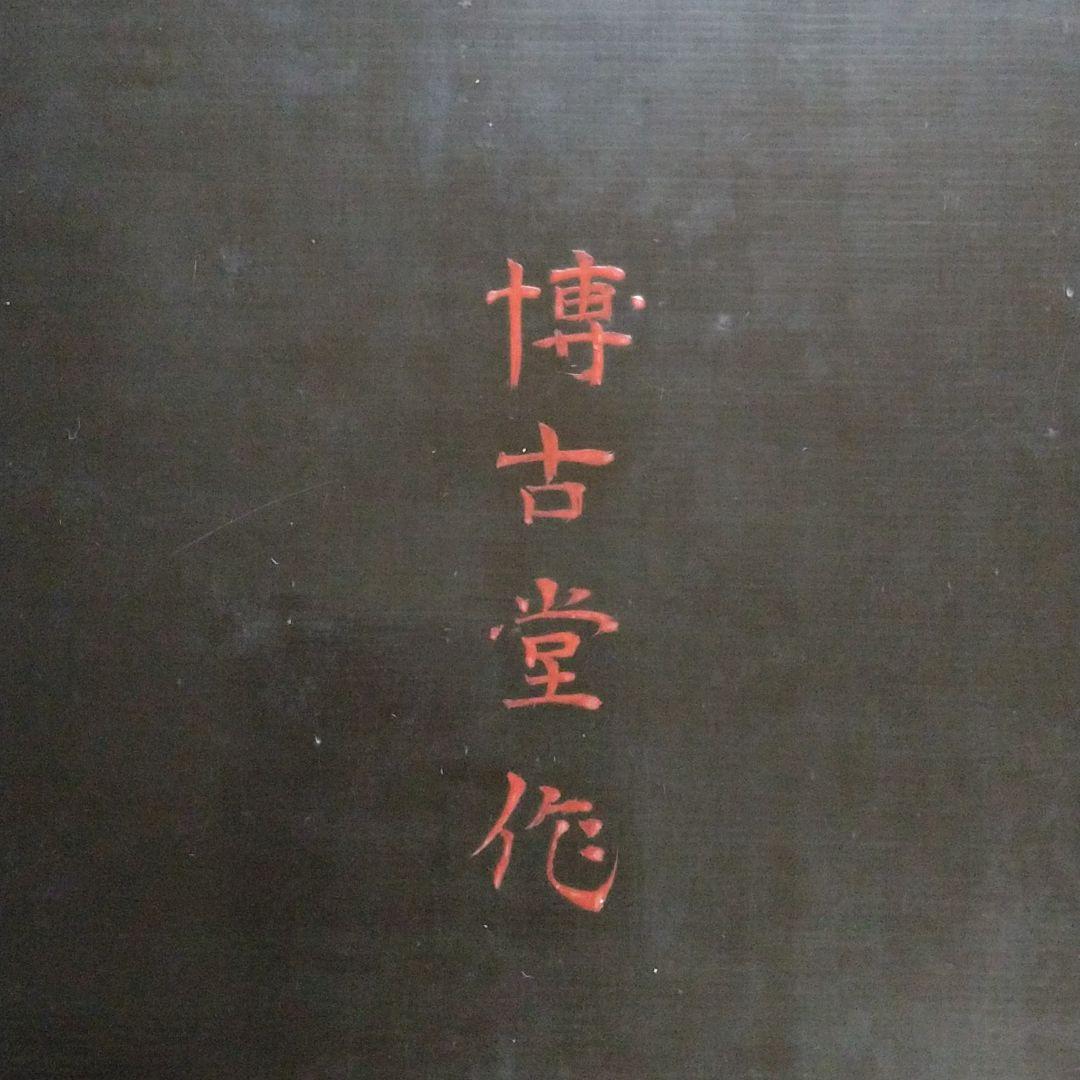 博古堂作